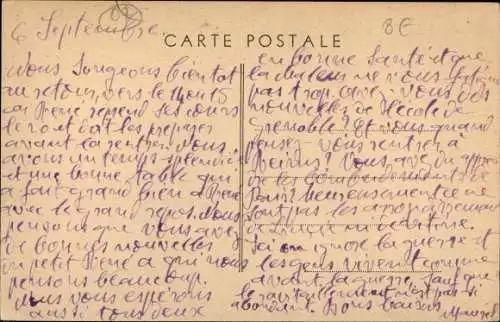 6 Septembre
8€
CARTE POSTALE
Nous songeons bientôt
au retour, vers le 14 ou 15
car René reprend ses cours
le 20 et doit les préparer
avant la rentrée. Nous
avons un temps splendide
et une bonne table qui
a fait grand bien à René
avec le grand repos. Nous
pensons que vous avez
de bonnes nouvelles
du petit René à qui nous
pensons beaucoup.
Nous vous espérons
aussi tous deux
en bonne santé et que
la chaleur ne vous fatigue
pas trop. Avez-vous des
nouvelles de l'école de
Grenoble? Et vous quand
pensez-vous rentrer à
? Vous avez dû apprendre
les bombardements de
Paris heureusement ce ne
sont pas les
Ici on ignore la guerre et
les gens vivent comme
avant la guerre, sauf que
le ravitaillement n'est pas si
abondant. Bons baisers
Marcel